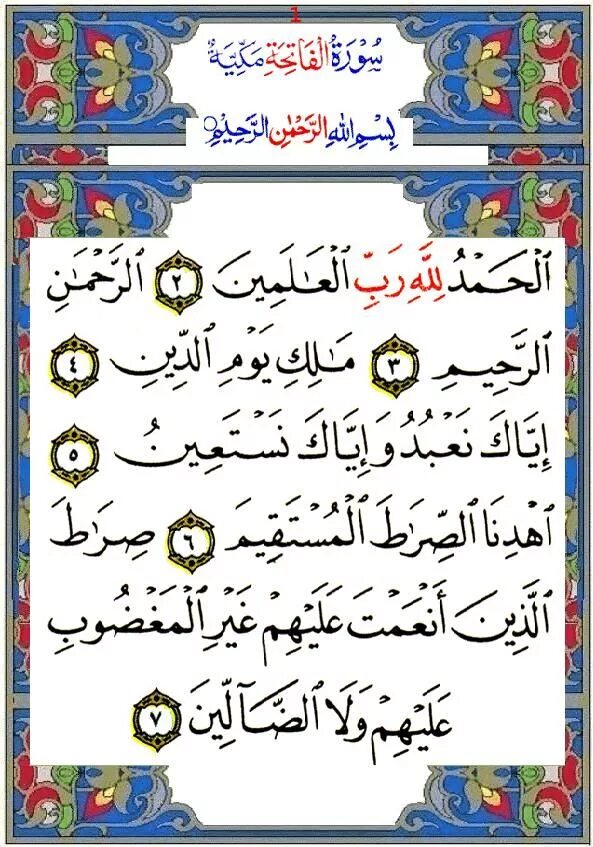 1
سُورَةُ الْفَاتِحَةِ مَكِّيَّةٌ
بِسْمِ اللهِ الرَّحْمٰنِ الرَّحِيْمِ
ٱلْحَمْدُ لِلَّهِ رَبِّ ٱلْعَٰلَمِينَ ٢ ٱلرَّحْمَٰنِ
ٱلرَّحِيمِ ٣ مَٰلِكِ يَوْمِ ٱلدِّينِ ٤
إِيَّاكَ نَعْبُدُ وَإِيَّاكَ نَسْتَعِينُ ٥
ٱهْدِنَا ٱلصِّرَٰطَ ٱلْمُسْتَقِيمَ ٦ صِرَٰطَ
ٱلَّذِينَ أَنْعَمْتَ عَلَيْهِمْ غَيْرِ ٱلْمَغْضُوبِ
عَلَيْهِمْ وَلَا ٱلضَّآلِّينَ ٧